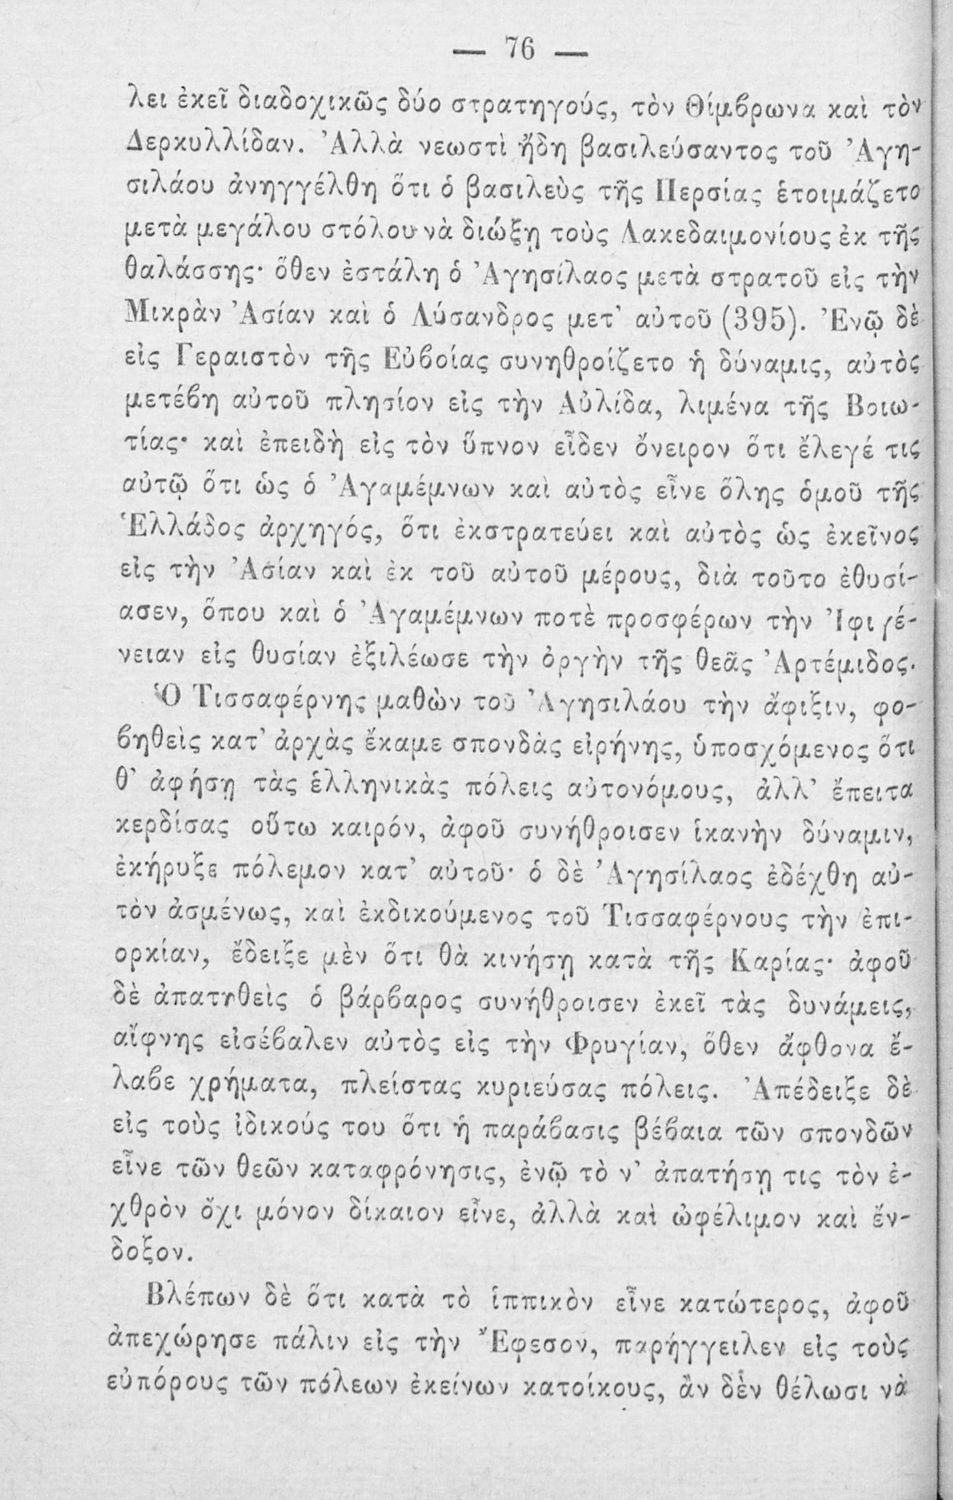 — 76 —
λει ἐκεῖ διαδοχικῶς δύο στρατηγούς, τὸν Θίμβρωνα καὶ τὸν
Δερκυλλίδαν. Ἀλλὰ νεωστὶ ἤδη βασιλεύσαντος τοῦ Ἀγη-
σιλάου ἀνηγγέλθη ὅτι ὁ βασιλεὺς τῆς Περσίας ἑτοιμάζετο
μετὰ μεγάλου στόλου νὰ διώξῃ τοὺς Λακεδαιμονίους ἐκ τῆς
θαλάσσης· ὅθεν ἐστάλη ὁ Ἀγησίλαος μετὰ στρατοῦ εἰς τὴν
Μικρὰν Ἀσίαν καὶ ὁ Λύσανδρος μετ' αὐτοῦ (395). Ἐνῷ δὲ
εἰς Γεραιστὸν τῆς Εὐβοίας συνηθροίζετο ἡ δύναμις, αὐτὸς
μετέβη αὐτοῦ πλησίον εἰς τὴν Αὐλίδα, λιμένα τῆς Βοιω-
τίας· καὶ ἐπειδὴ εἰς τὸν ὕπνον εἶδεν ὄνειρον ὅτι ἔλεγέ τις
αὐτῷ ὅτι ὡς ὁ Ἀγαμέμνων καὶ αὐτὸς εἶνε ὅλης ὁμοῦ τῆς
Ἑλλάδος ἀρχηγός, ὅτι ἐκστρατεύει καὶ αὐτὸς ὡς ἐκεῖνος
εἰς τὴν Ἀσίαν καὶ ἐκ τοῦ αὐτοῦ μέρους, διὰ τοῦτο ἐθυσί-
ασεν, ὅπου καὶ ὁ Ἀγαμέμνων ποτὲ προσφέρων τὴν Ἰφιγέ-
νειαν εἰς θυσίαν ἐξιλέωσε τὴν ὀργὴν τῆς θεᾶς Ἀρτέμιδος.
Ὁ Τισσαφέρνης μαθὼν τοῦ Ἀγησιλάου τὴν ἄφιξιν, φο-
βηθεὶς κατ' ἀρχὰς ἔκαμε σπονδὰς εἰρήνης, ὑποσχόμενος ὅτι
θ' ἀφήσῃ τὰς ἑλληνικὰς πόλεις αὐτονόμους, ἀλλ' ἔπειτα
κερδίσας οὕτω καιρόν, ἀφοῦ συνήθροισεν ἱκανὴν δύναμιν,
ἐκήρυξε πόλεμον κατ' αὐτοῦ· ὁ δὲ Ἀγησίλαος ἐδέχθη αὐ-
τὸν ἀσμένως, καὶ ἐκδικούμενος τοῦ Τισσαφέρνους τὴν ἐπι-
ορκίαν, ἔδειξε μὲν ὅτι θὰ κινήσῃ κατὰ τῆς Καρίας· ἀφοῦ
δὲ ἀπατηθεὶς ὁ βάρβαρος συνήθροισεν ἐκεῖ τὰς δυνάμεις,
αἴφνης εἰσέβαλεν αὐτὸς εἰς τὴν Φρυγίαν, ὅθεν ἄφθονα ἔ-
λαβε χρήματα, πλείστας κυριεύσας πόλεις. Ἀπέδειξε δὲ
εἰς τοὺς ἰδικούς του ὅτι ἡ παράβασις βέβαια τῶν σπονδῶν
εἶνε τῶν θεῶν καταφρόνησις, ἐνῷ τὸ ν' ἀπατήσῃ τις τὸν ἐ-
χθρὸν ὄχι μόνον δίκαιον εἶνε, ἀλλὰ καὶ ὠφέλιμον καὶ ἔν-
δοξον.
Βλέπων δὲ ὅτι κατὰ τὸ ἱππικὸν εἶνε κατώτερος, ἀφοῦ
ἀπεχώρησε πάλιν εἰς τὴν Ἔφεσον, παρήγγειλεν εἰς τοὺς
εὐπόρους τῶν πόλεων ἐκείνων κατοίκους, ἂν δὲν θέλωσι νὰ